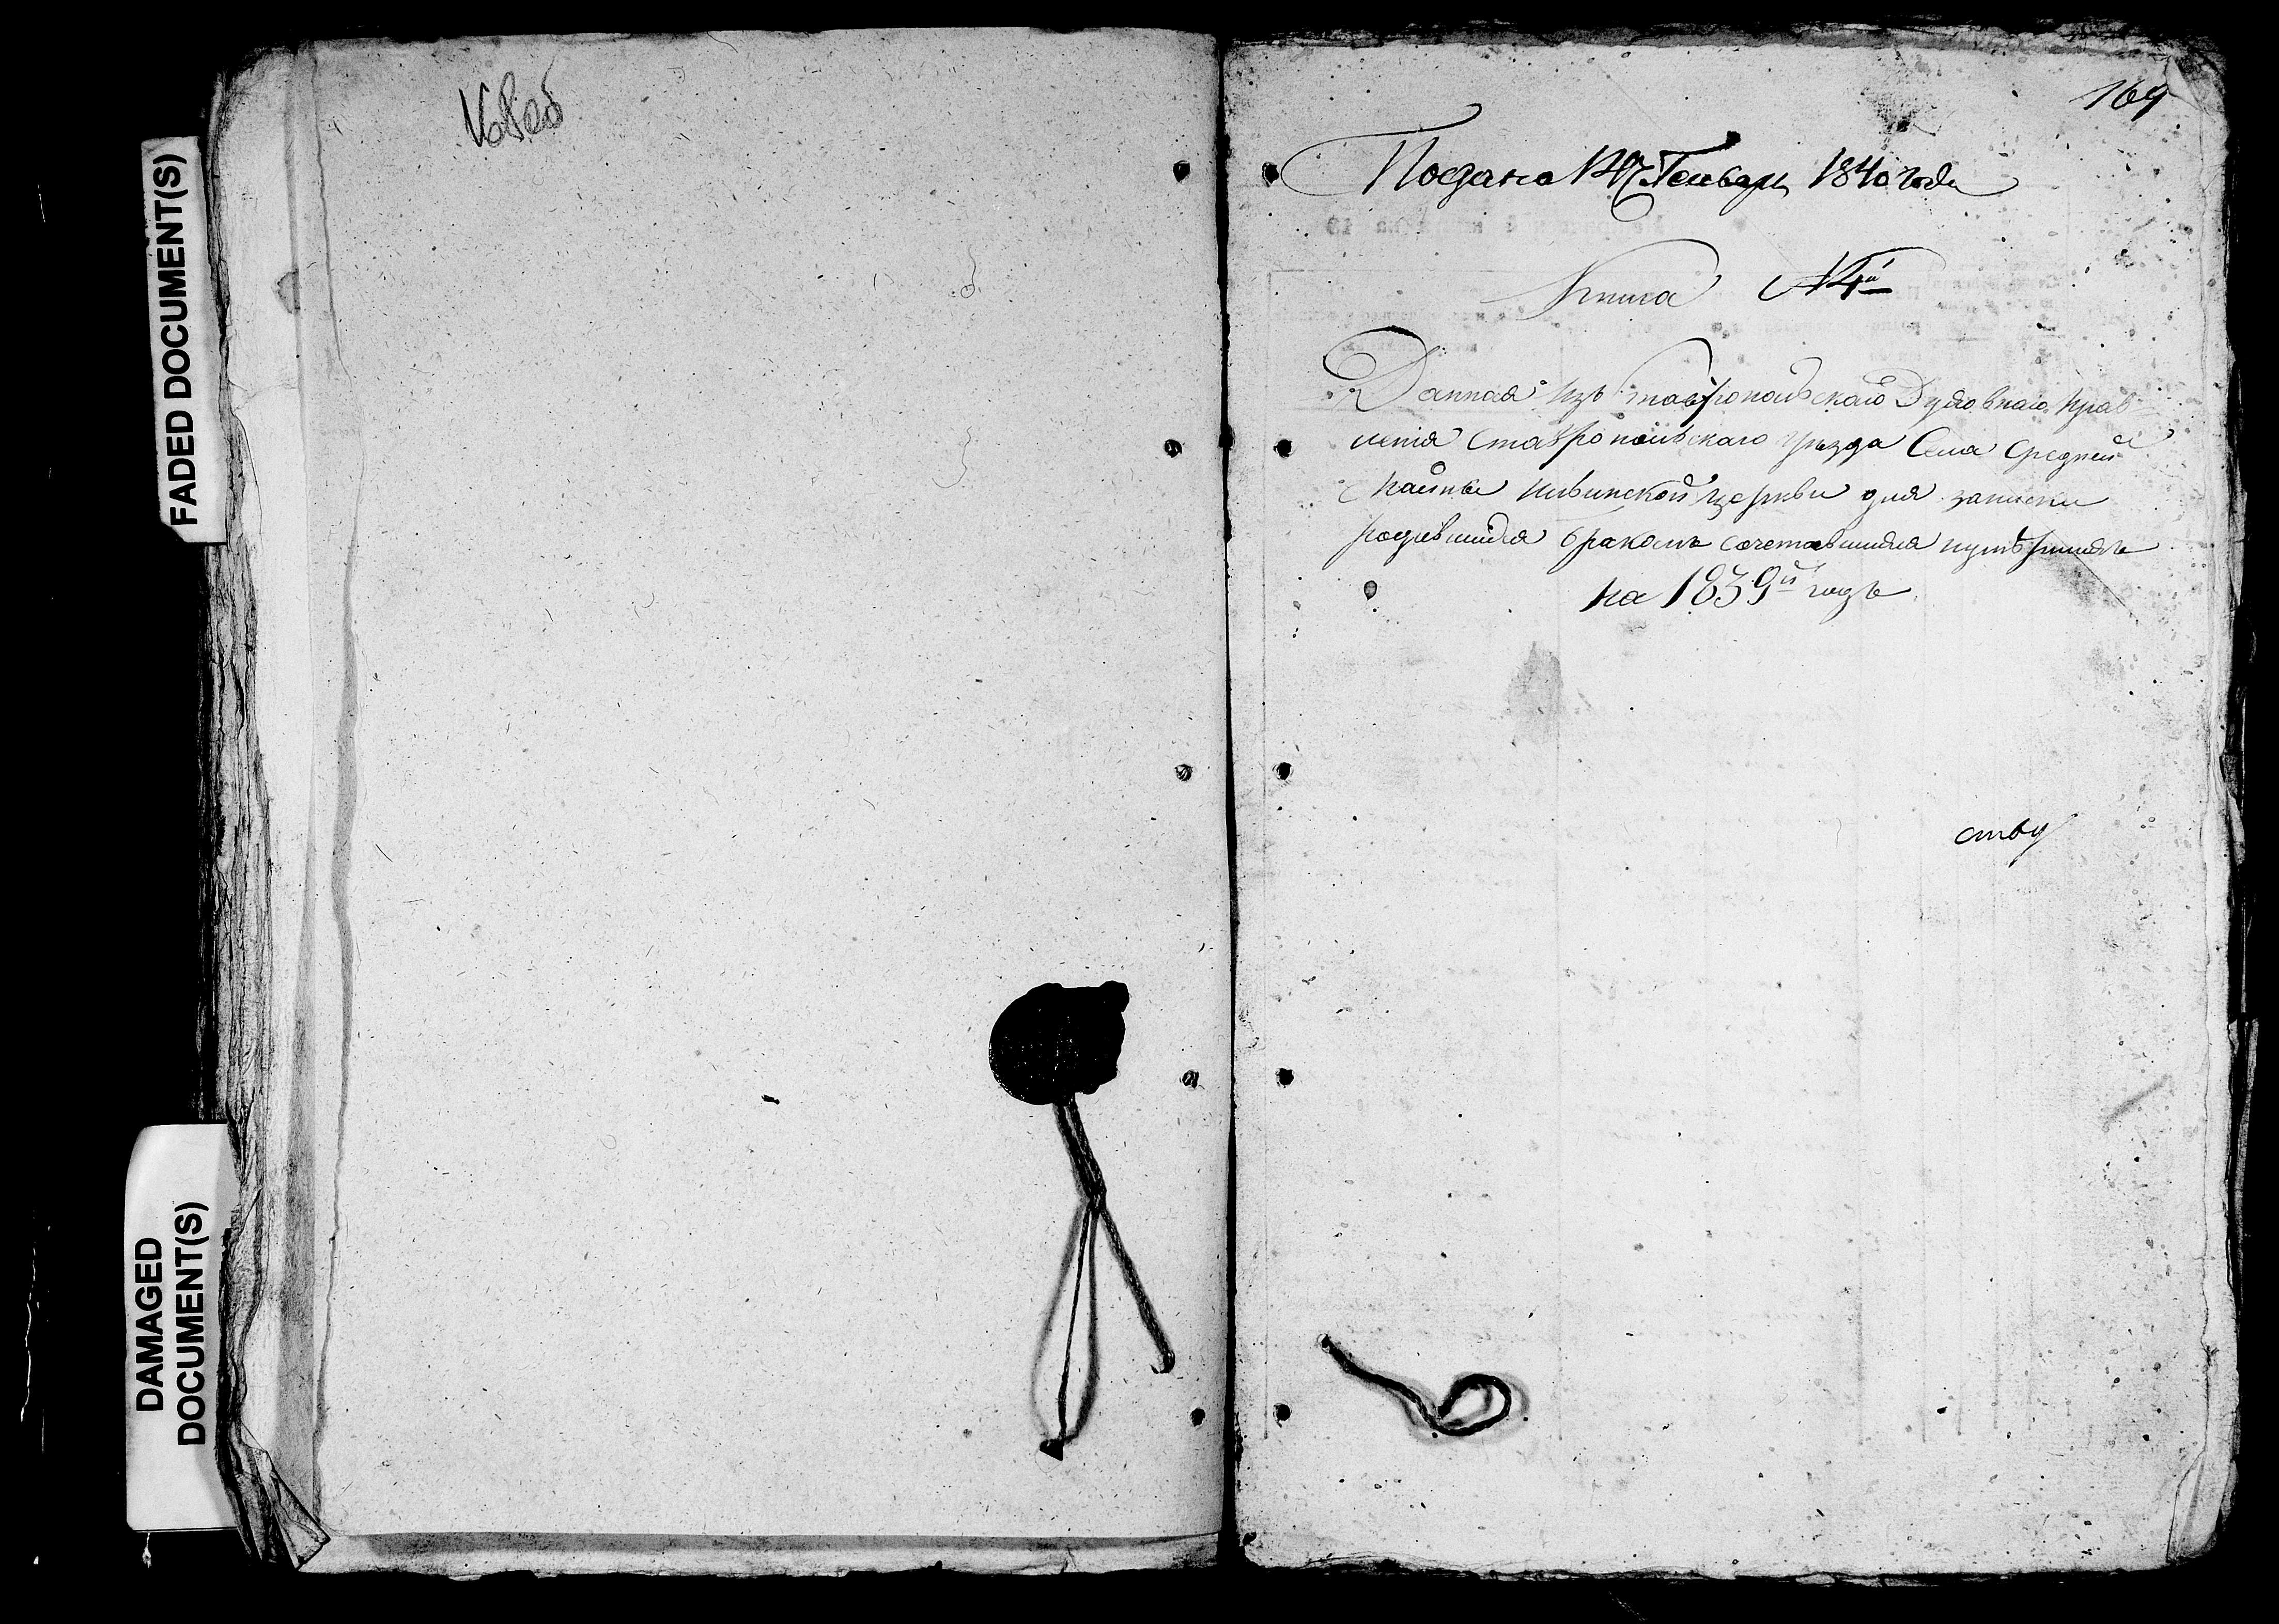 FADED DOCUMENT(S)
DAMAGED
DOCUMENT(S)
169
Подано Генваря 1840 года
Книга №4й
Данная изъ Ставропольскаго Духовнаго прав
ленія Ставропольскаго уѣзда Села Средней
церкви для записки
родившихся бракомъ сочетавшихся и умершихъ
на 1839й годъ
ству